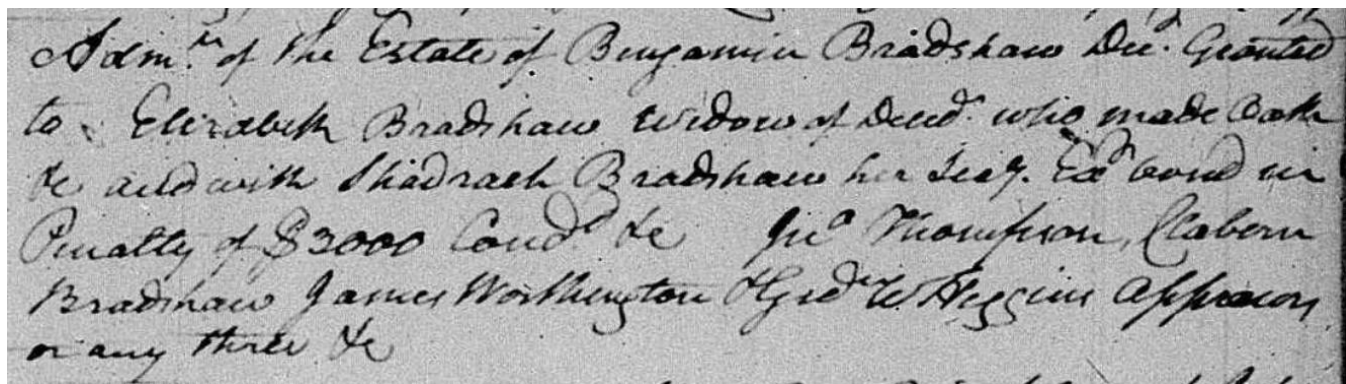 Adm.n of the Estate of Bengamin Bradshaw Dec.d Granted
to Elizabeth Bradshaw widow of Deced. who made Oath
&c and with Shadrach Bradshaw her Secy. Exd bond in
Penalty of $3000 Cond.d &c Jno Thompson, Clabern
Bradshaw James Worthington & W Higgins Apprasors
or any three &c